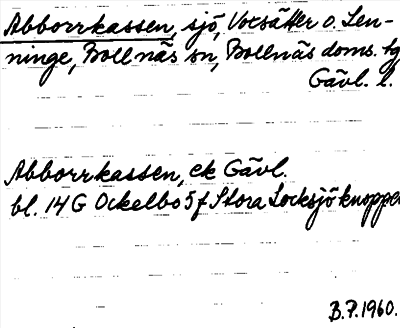 Abborrkassen, sjö, Voxsätter o. Len-
ninge, Bollnäs sn, Bollnäs doms. tg
Gävl. l.
Abborrkassen, ek Gävl.
bl. 14 G Ockelbo 5 f Stora Locksjöknoppe
B.P. 1960.